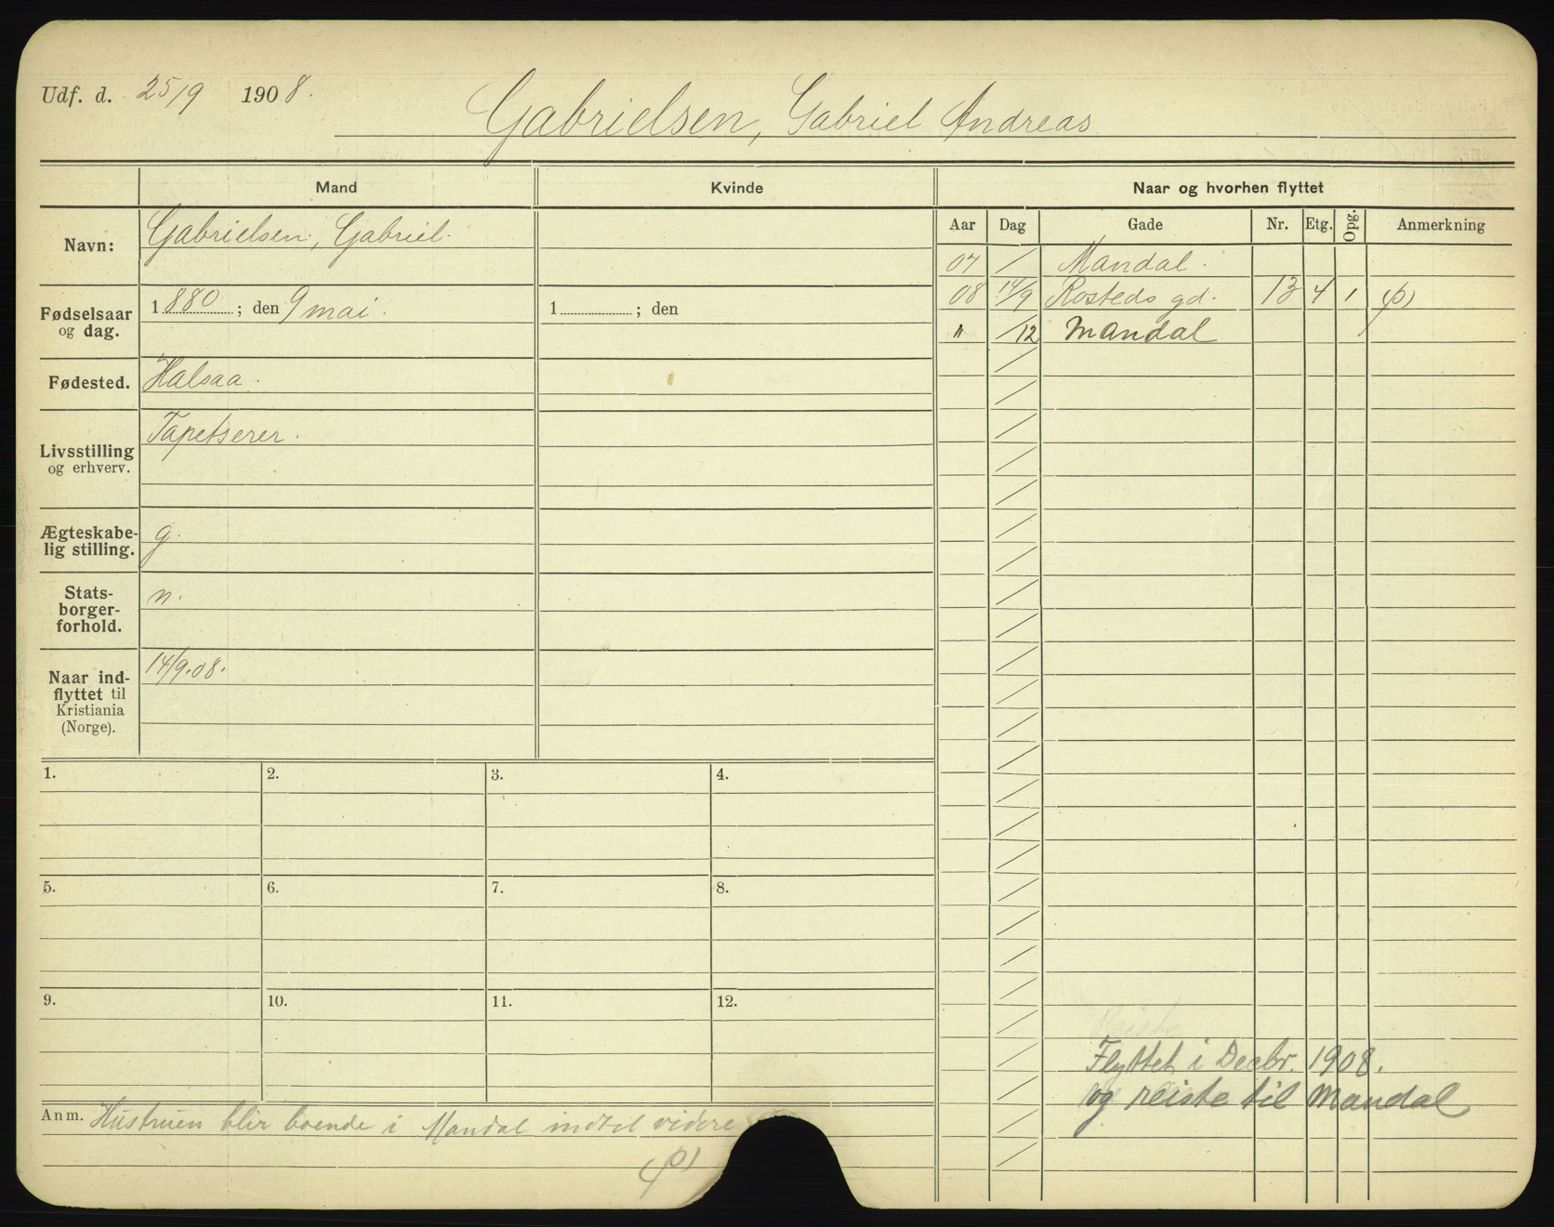 Udf. d. 25/9 1908.
Gabrielsen, Gabriel Andreas
Mand
Kvinde
Naar og hvorhen flyttet
Navn:
Gabrielsen, Gabriel.
Fødselsaar og dag.
1880; den 9 mai.
1 ; den
Fødested.
Halsaa.
Livsstilling og erhverv.
Tapetserer.
Ægteskabe-
lig stilling.
g.
Stats-
borger-
forhold.
n.
Naar ind-
flyttet til
Kristiania
(Norge).
14/9.08.
Aar Dag Gade Nr. Etg. Opg. Anmerkning
07 / Mandal.
08 14/9 Rosteds gd. 13 4 1 (p)
" /12 Mandal
1. 2. 3. 4.
5. 6. 7. 8.
9. 10. 11. 12.
Flyttet i Decbr. 1908.
og reiste til Mandal
Anm. Hustruen blir boende i Mandal indtil videre
(p)